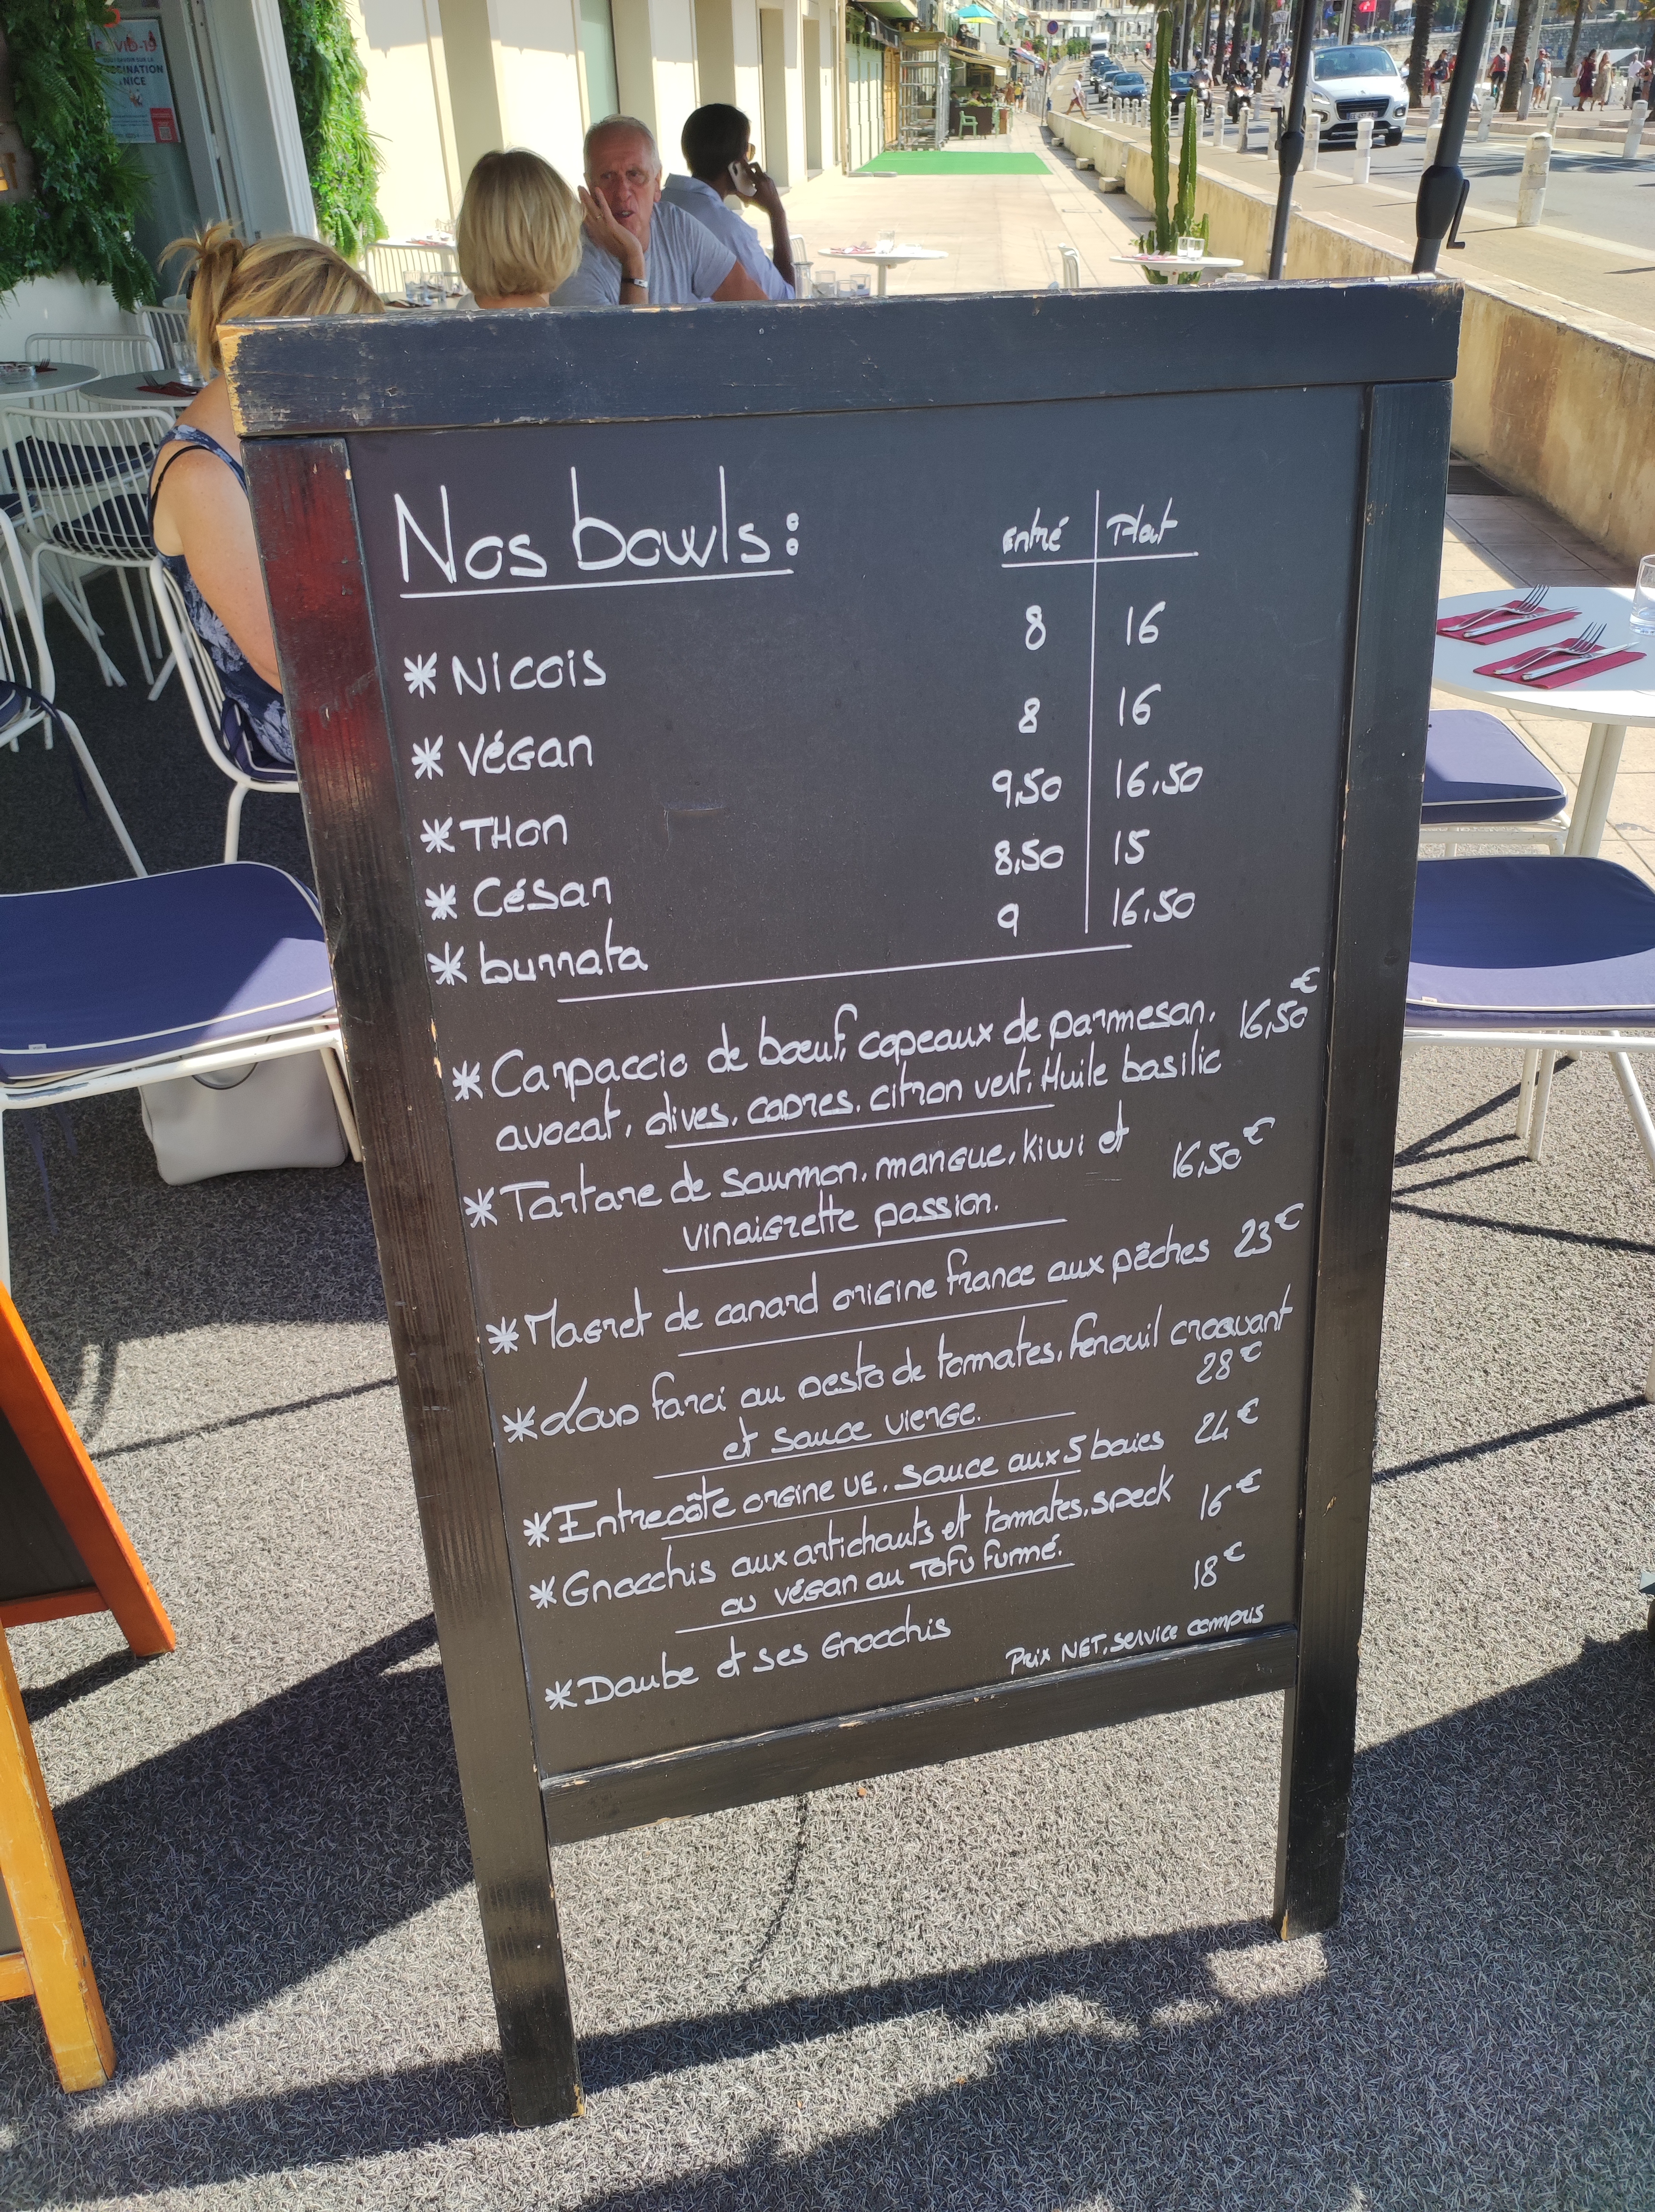 COVID-19
NICE
Nos bowls:
Entré Plat
* Nicois 8 16
* Végan 8 16
* Thon 9,50 16,50
* César 8,50 15
* burrata 9 16,50
* Carpaccio de bœuf, copeaux de parmesan, 16,50€
avocat, olives, capres, citron vert, Huile basilic
* Tartare de saumon, mangue, kiwi et 16,50€
vinaigrette passion.
* Magret de canard origine france aux pêches 23€
* Loup farci au pesto de tomates, fenouil croquant
et sauce vierge. 28€
* Entrecôte orgine UE, sauce aux 5 baies 24€
* Gnocchis aux artichauts et tomates, speck 16€
ou végan au Tofu fumé.
* Daube et ses Gnocchis 18€
Prix NET, service compris